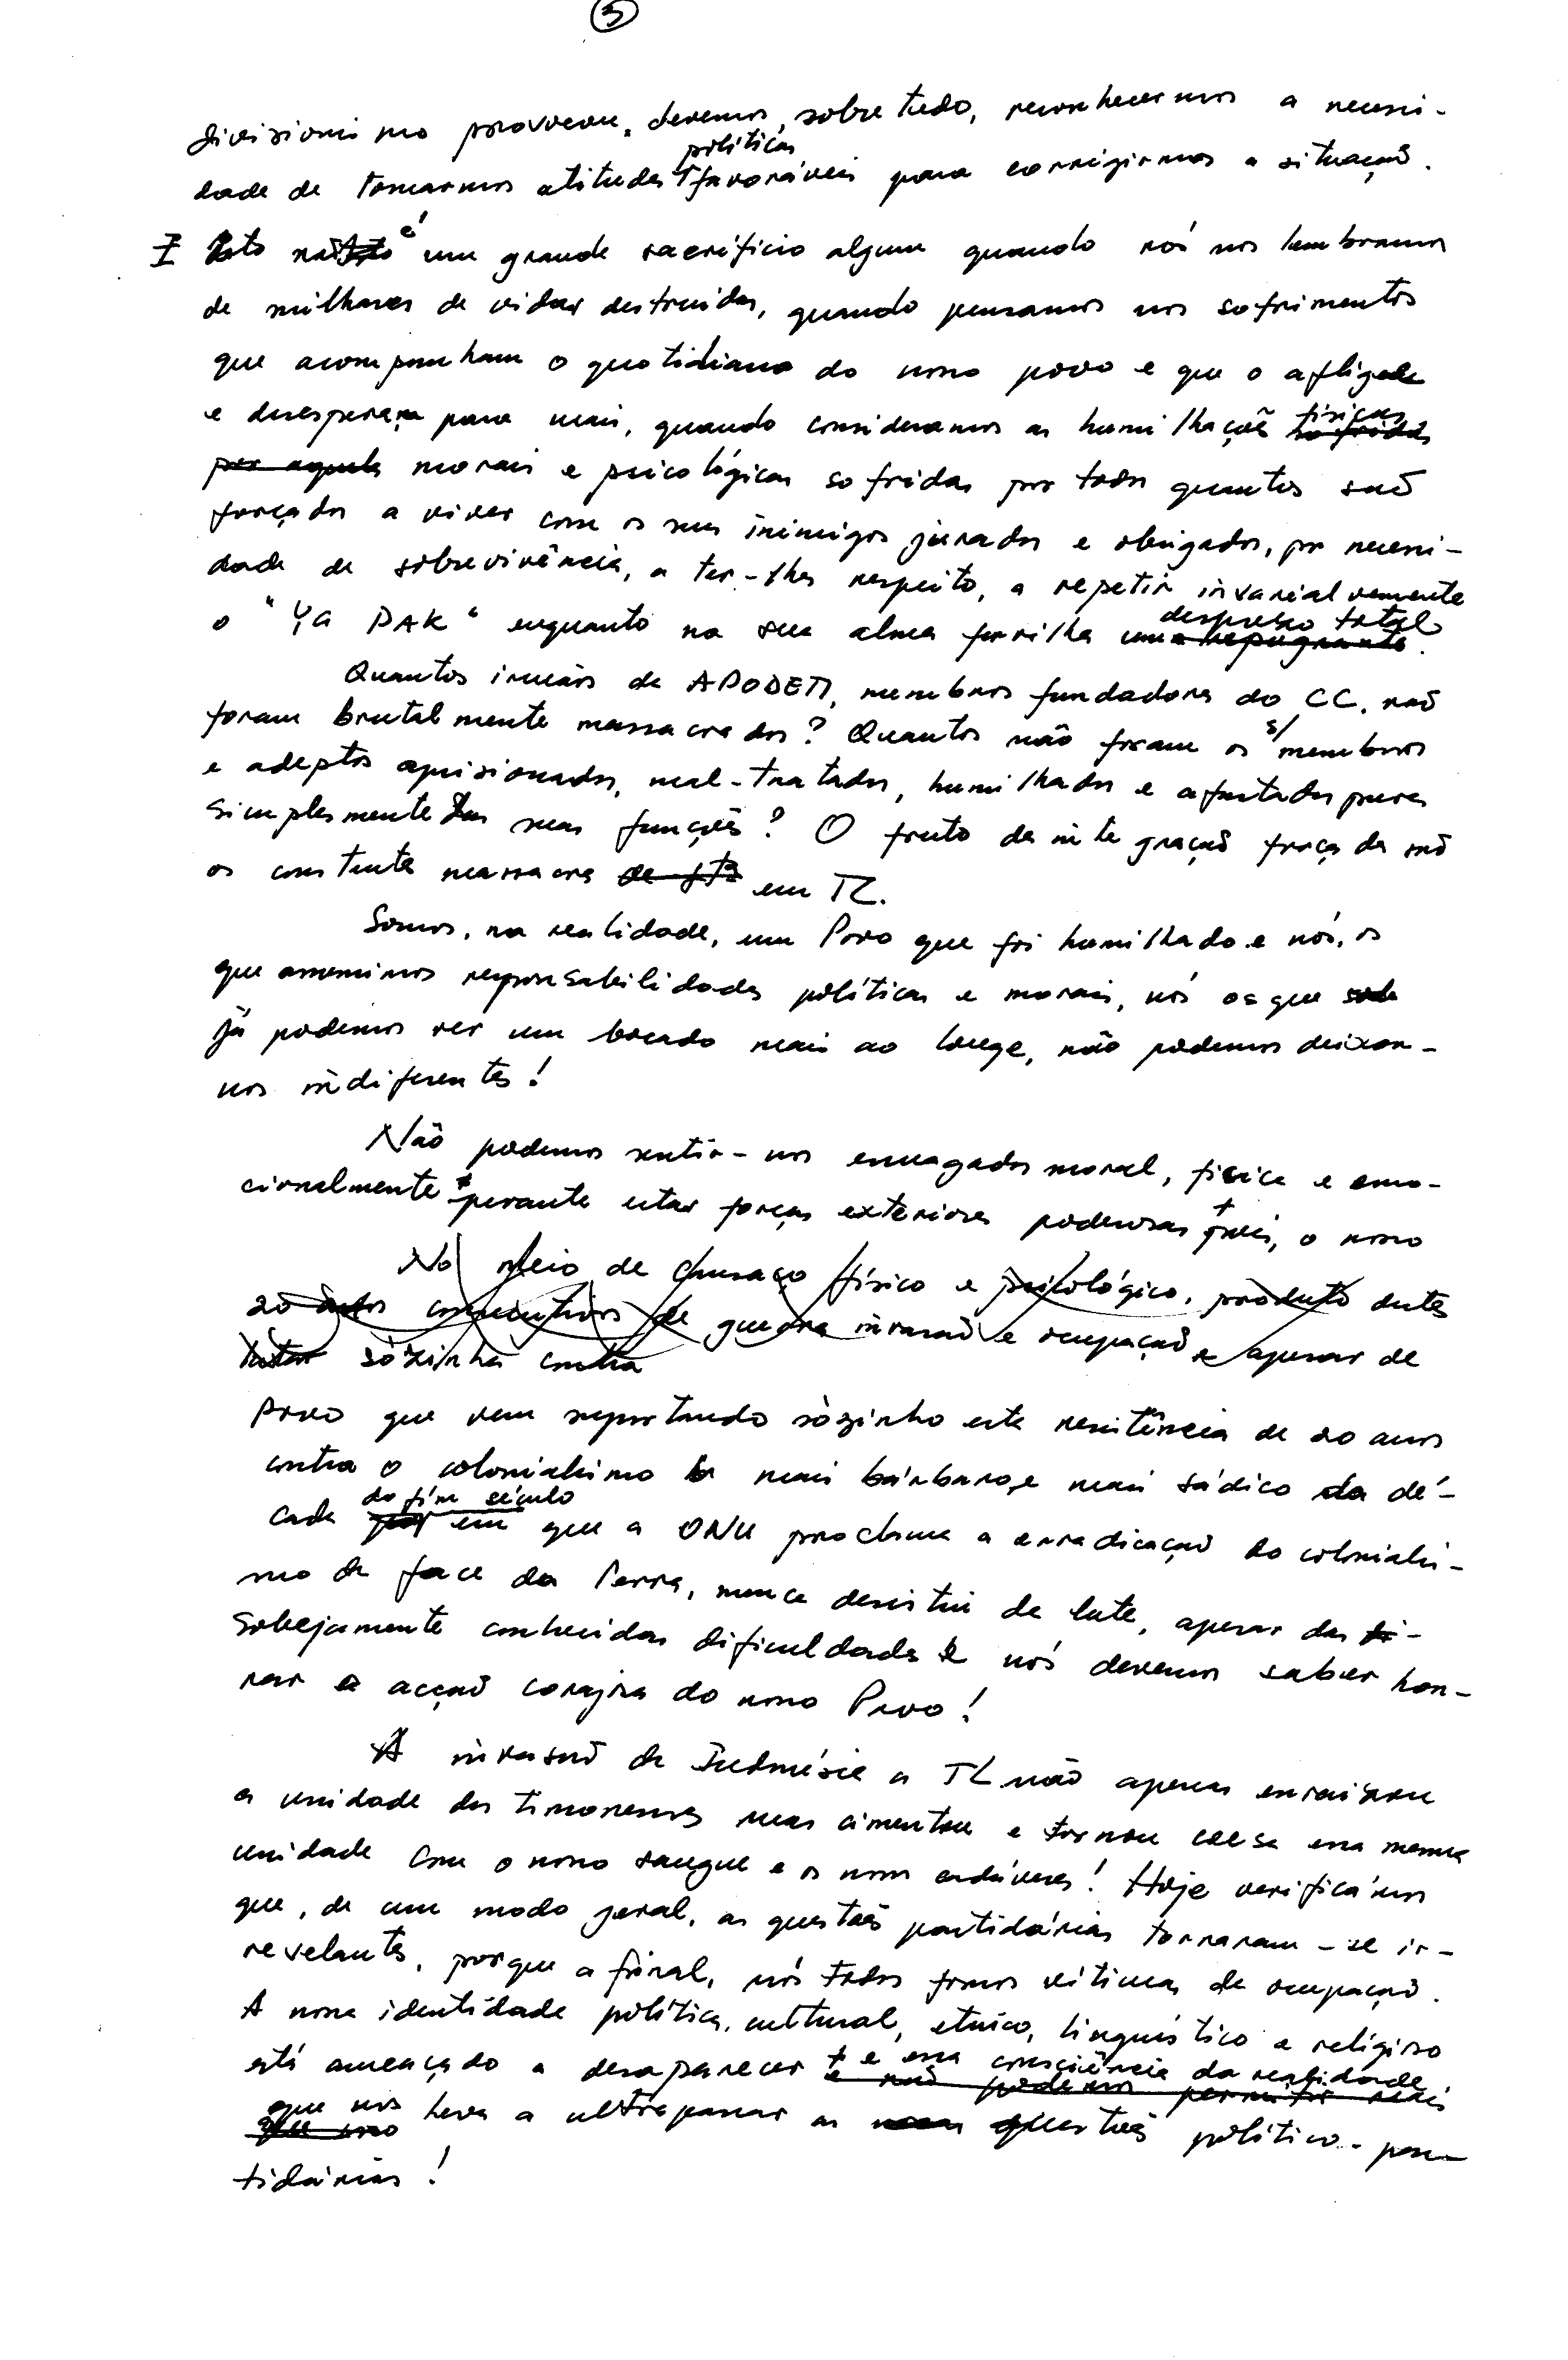 5
divisionismo provocou, devemos, sobretudo, reconhecermos a necessi-
dade de tomarmos atitudes políticas favoráveis para corrigirmos a situação.
Isto não é um grande sacrifício algum quando nós nos lembramos
de milhares de vidas destruidas, quando pensamos nos sofrimentos
que acompanham o quotidiano do nosso povo e que o aflige
e desespera para mais, quando consideramos as humilhações físicas
por aqueles morais e psicológicas sofridas por todos quantos são
forçados a viver com os seus inimigos jurados e obrigados, por necessi-
dade de sobrevivência, a ter-lhes respeito, a repetir invariavelmente
o "YA PAK" enquanto na sua alma fervilha um desprezo total.
Quantos irmãos da APODETI, membros fundadores do CC. não
foram brutalmente massacrados? Quantos não foram os s/ membros
e adeptos aprisionados, mal-tratados, humilhados e afastados pura
simplesmente das suas funções? O fruto da integração forçada são
os constantes massacres em TL.
Somos, na realidade, um Povo que foi humilhado e nós, os
que assumimos responsabilidades políticas e morais, nós os que
já podemos ver um bocado mais ao longe, não podemos deixar-
nos indiferentes!
Não podemos sentir-nos esmagados moral, física e emo-
cionalmente perante estas forças exteriores poderosas + pois, o nosso
No meio de cansaço físico e psicológico, produto destes
20 anos consecutivos de guerra invasão e ocupação e apesar de
lutar sòzinha contra
Povo que vem suportando sòzinho esta resistência de 20 anos
contra o colonialismo mais bárbaro e mais sádico da dé-
cada do fim século em que a ONU proclama a erradicação do coloniali-
smo da face da Terra, nunca desistiu da luta, apesar das
sobejamente conhecidas dificuldades e nós devemos saber hon-
rar a acção corajosa do nosso Povo!
A invasão da Indonésia a TL não apenas enraizou
a unidade dos timorenses mas cimentou e tornou coesa essa mesma
unidade com o nosso sangue e os nossos cadáveres! Hoje verificámos
que, de um modo geral, as questões partidárias tornaram-se ir-
revelantes, porque afinal, nós todos fomos vítimas da ocupação.
A nossa identidade política, cultural, etnico, linguístico e religioso
está ameaçado a desaparecer + e essa consciência da realidade
que nos leva a ultrapassar as questões político-par-
tidárias!